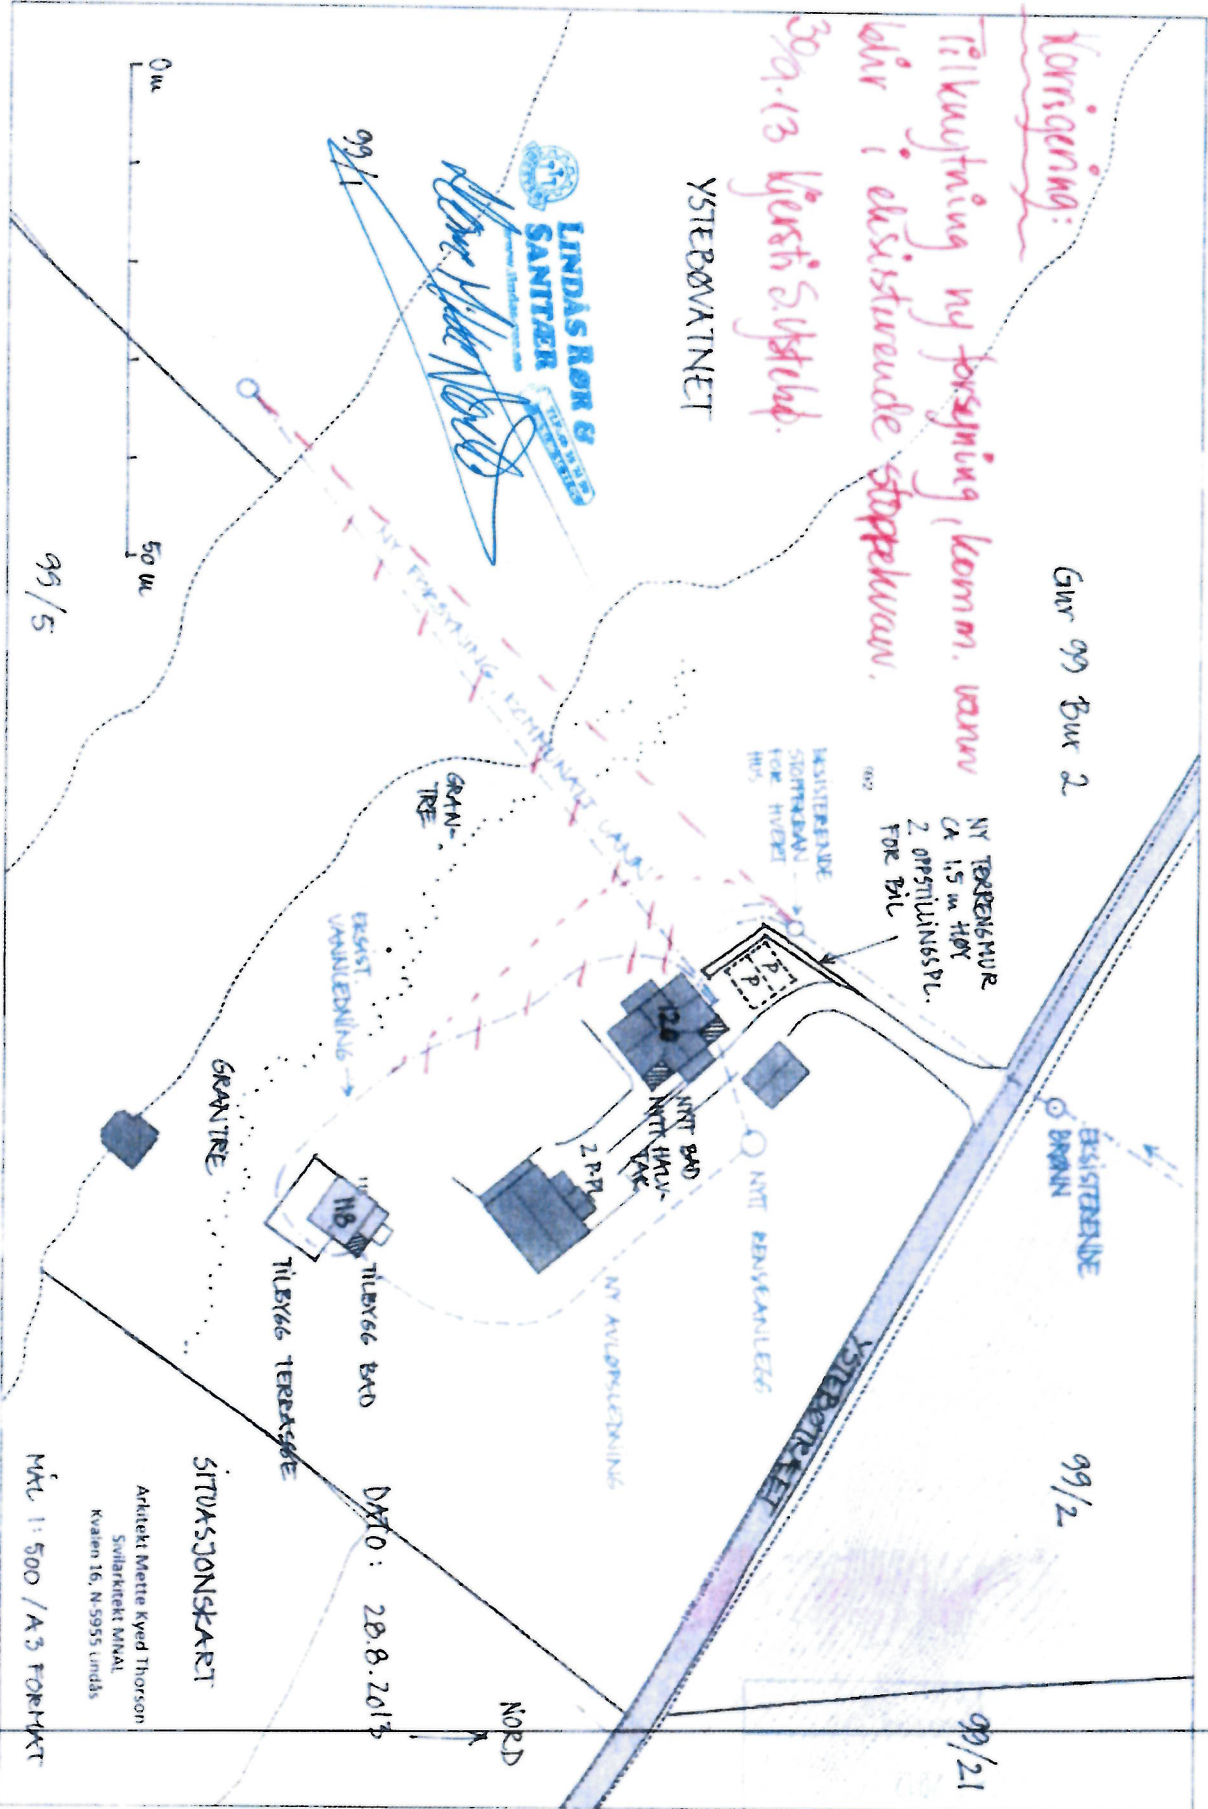 Korrigering:
Tilknytning ny forsyning, komm. vann
blir i eksisterende stoppekran.
30/9-13 Kjersti S. Ystebø.
Gnr 99 Bnr 2
YSTEBØVATNET
LINDÅS RØR &
SANITÆR
99/1
0m
50m
99/5
NY TERRENGMUR
CA 1,5 m HØY
2 OPPSTILLINGSPL.
FOR BIL
EKSISTERENDE
STOPPEKRAN
FOR HVERT
HUS
NY FORSYNING KOMMUNALT VANN
GRAN-
TRE
EKSIST.
VANNLEDNING
GRANTRE
P
P
120
NYTT BAD
NYTT HALV-
TAK
2 P-PL
118
TILBYGG BAD
TILBYGG TERRASSE
NYTT RENSEANLEGG
NY AVLØPSLEDNING
EKSISTERENDE
BRØNN
YSTEBØTREET
99/2
99/21
NORD
DATO: 28.8.2013
SITUASJONSKART
Arkitekt Mette Kyed Thorson
Sivilarkitekt MNAL
Kvalen 16, N-5955 Lindås
MÅL 1:500 / A3 FORMAT